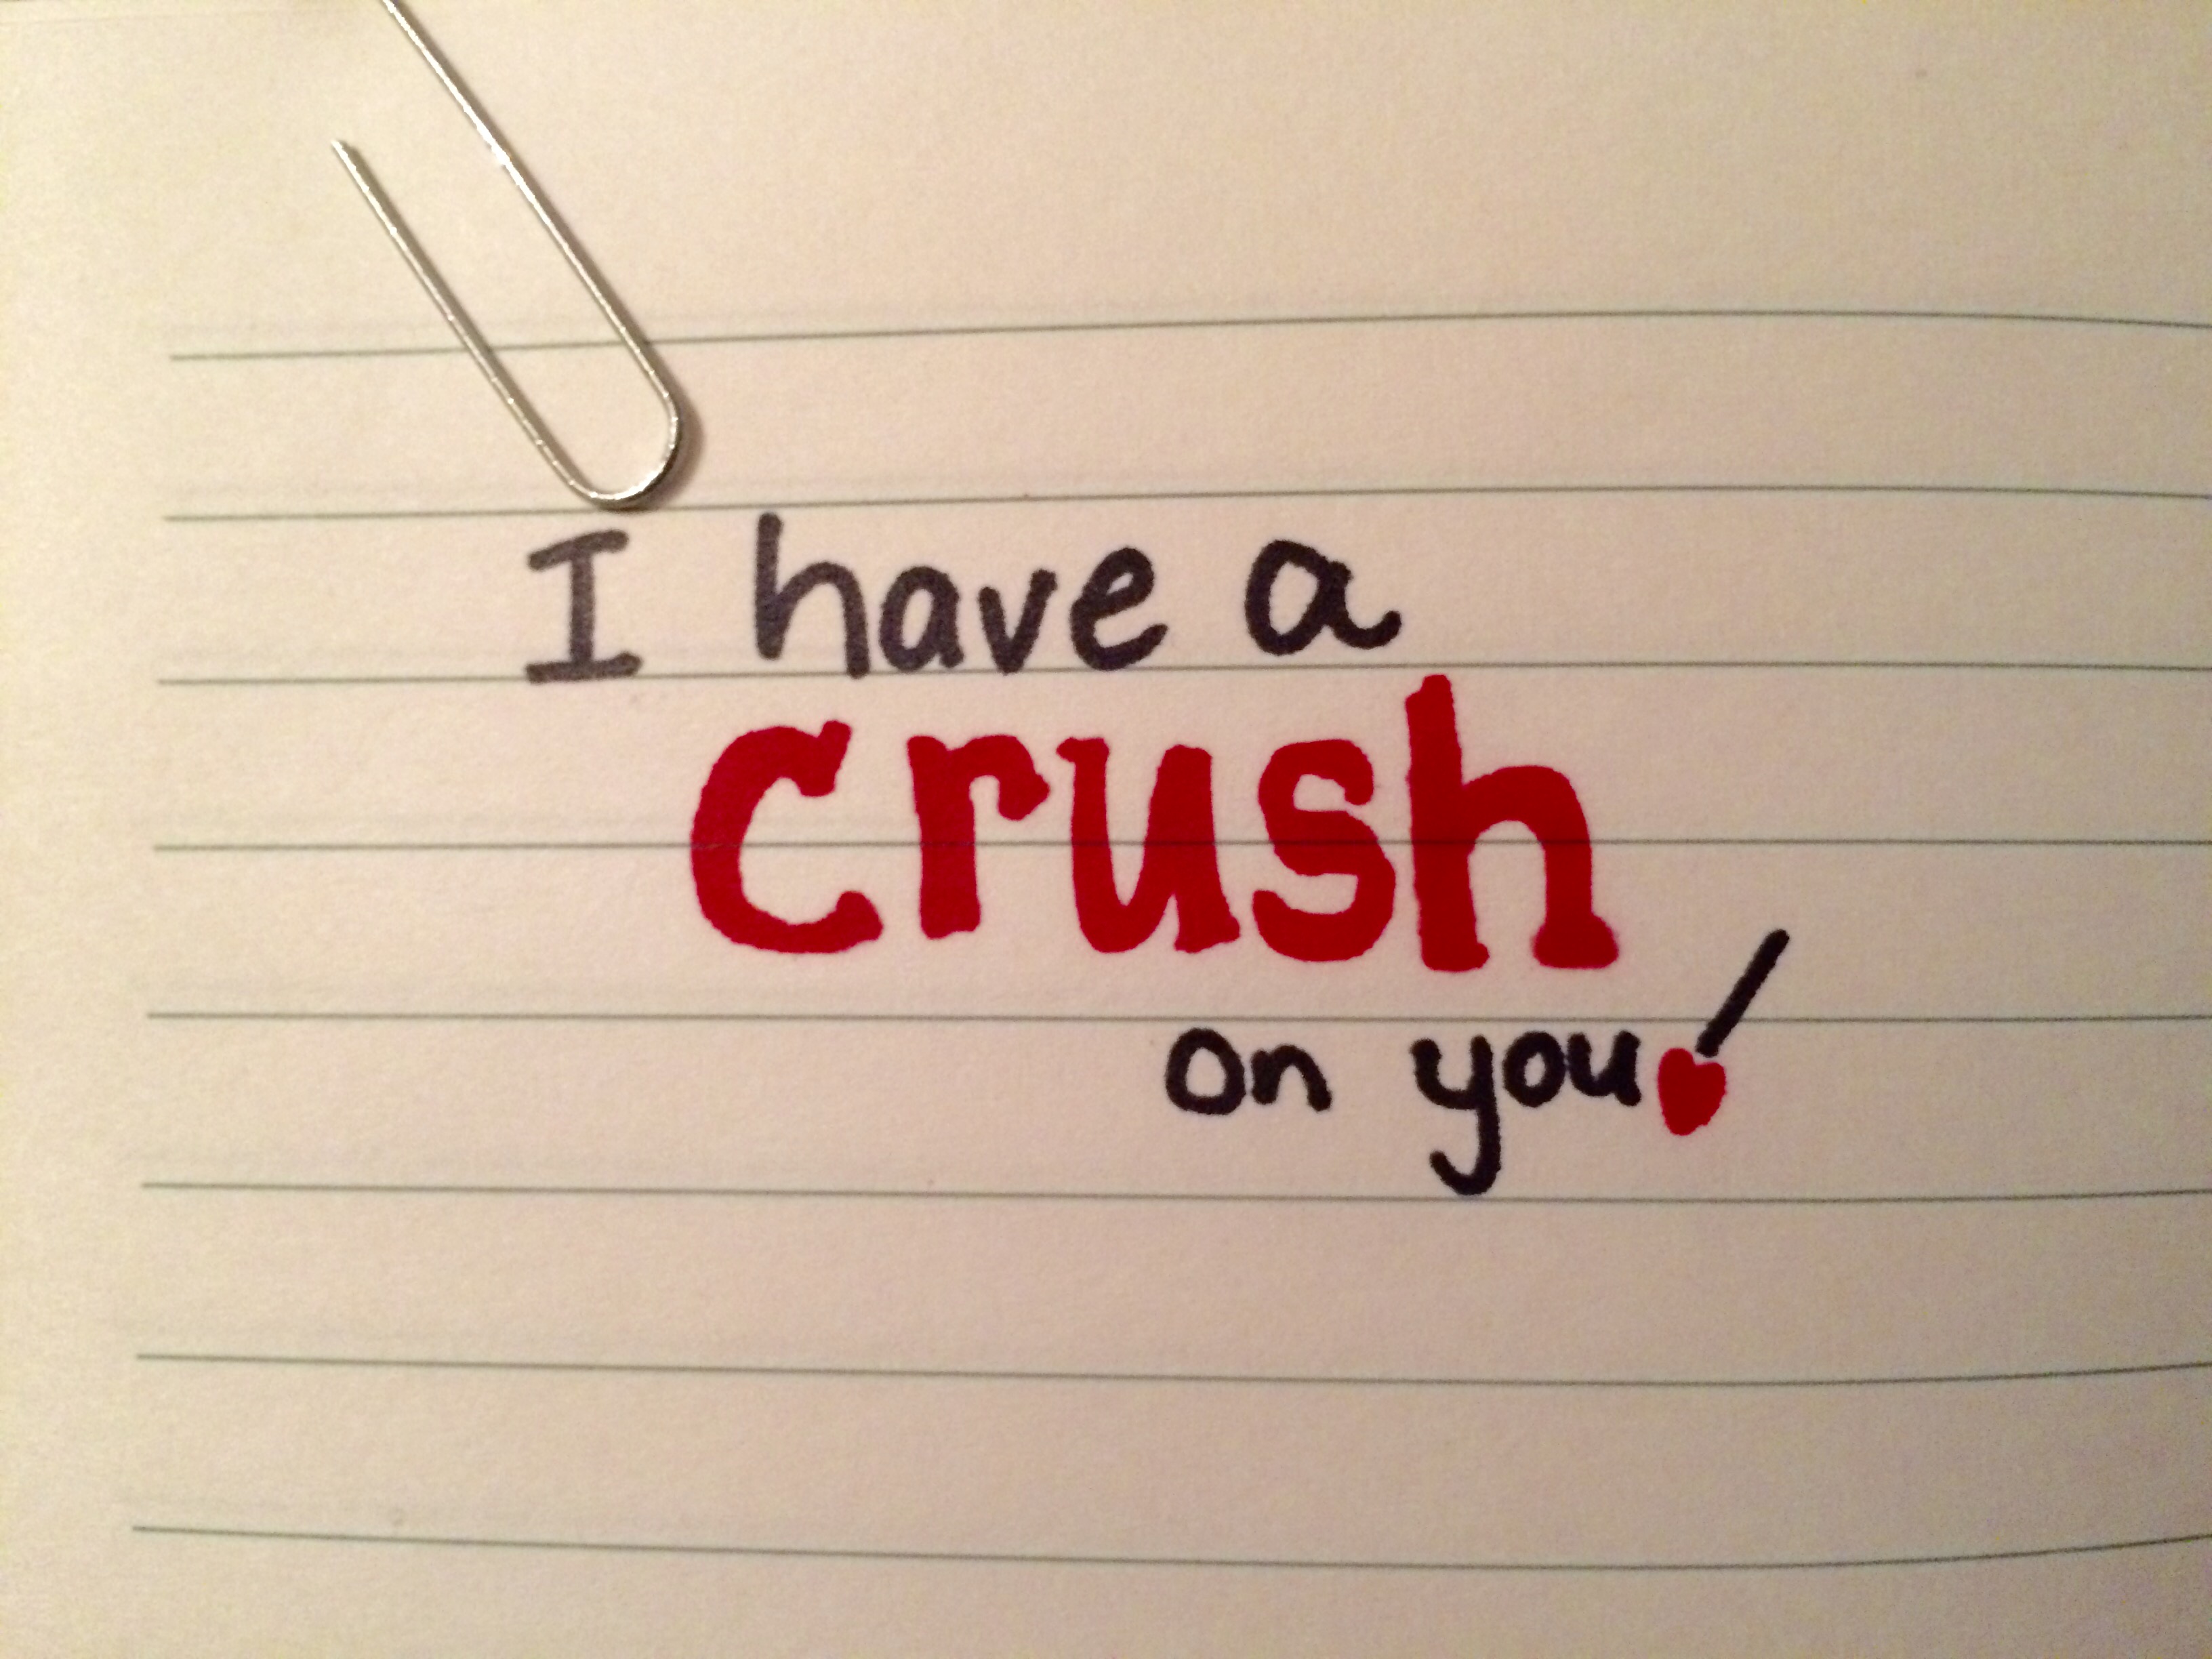 I have a
crush
on you!